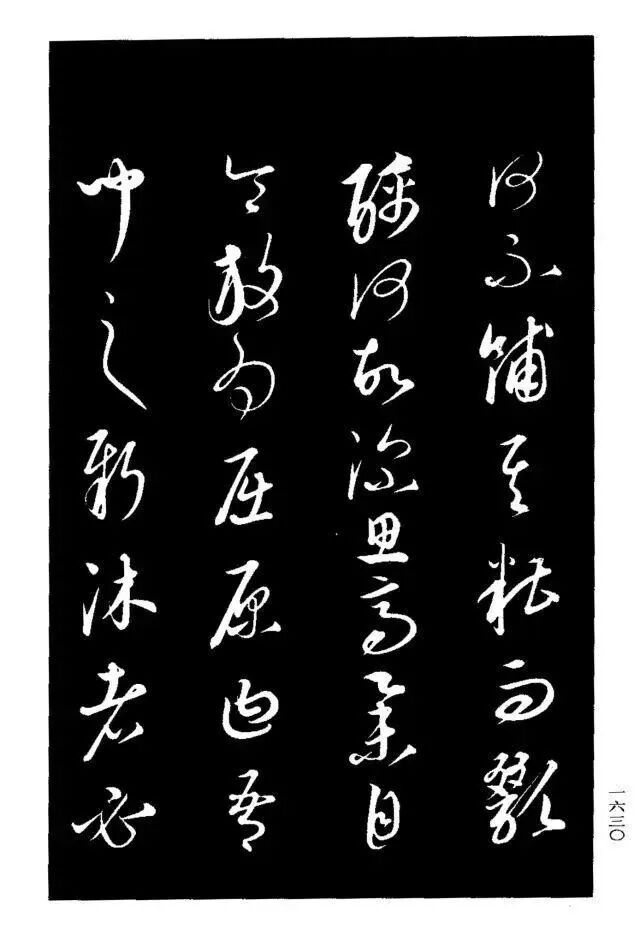 何不餔其糟而歠
醨何故深思高舉自
令放為屈原曰吾
聞之新沐者必
一六三〇